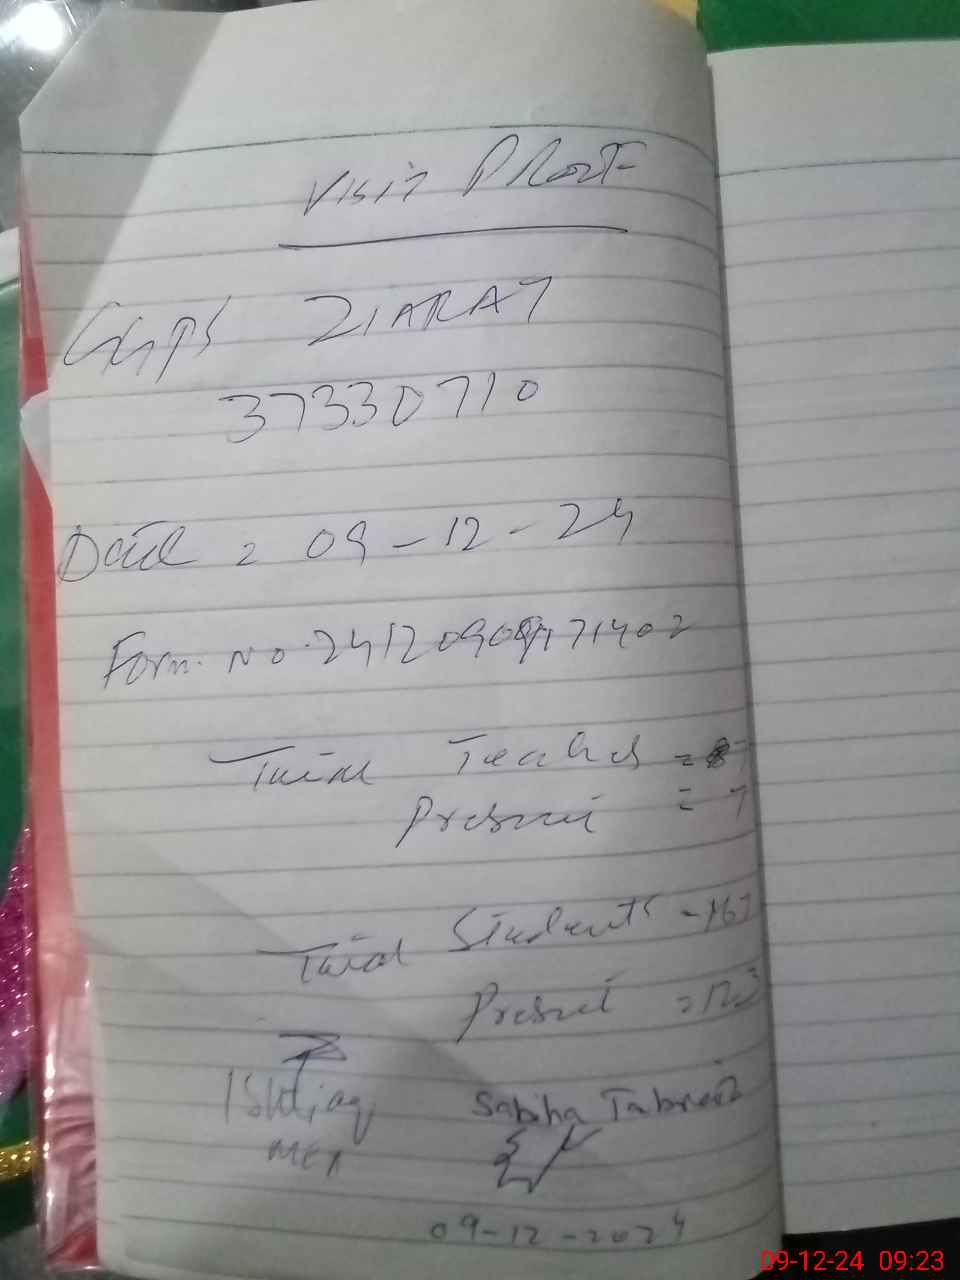 Visit PROOF
GGPS ZIARAT
37330710
Date = 09-12-24
Form No. 
Total Teachers = 7
Present = 7
Total Students = 167
Present = 123
Ishtiaq
MEA
Sabiha Tabreiz
09-12-2024
09-12-24 09:23